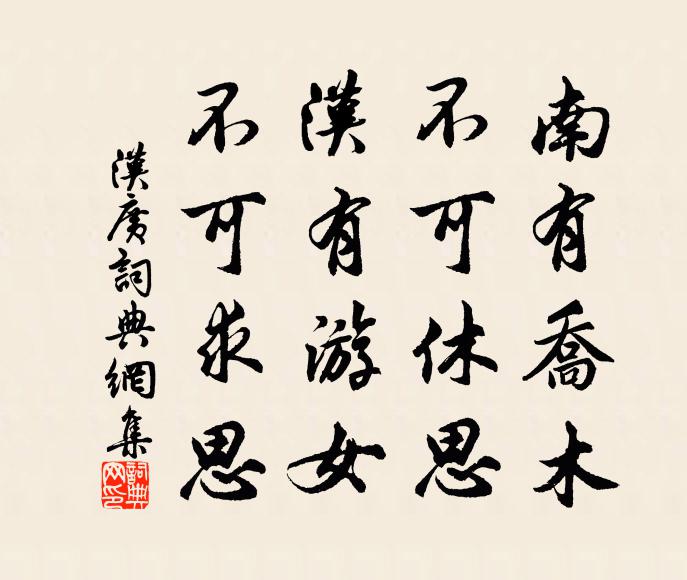 南有喬木
不可休思
漢有游女
不可求思
漢廣詞典網集
詞典网印